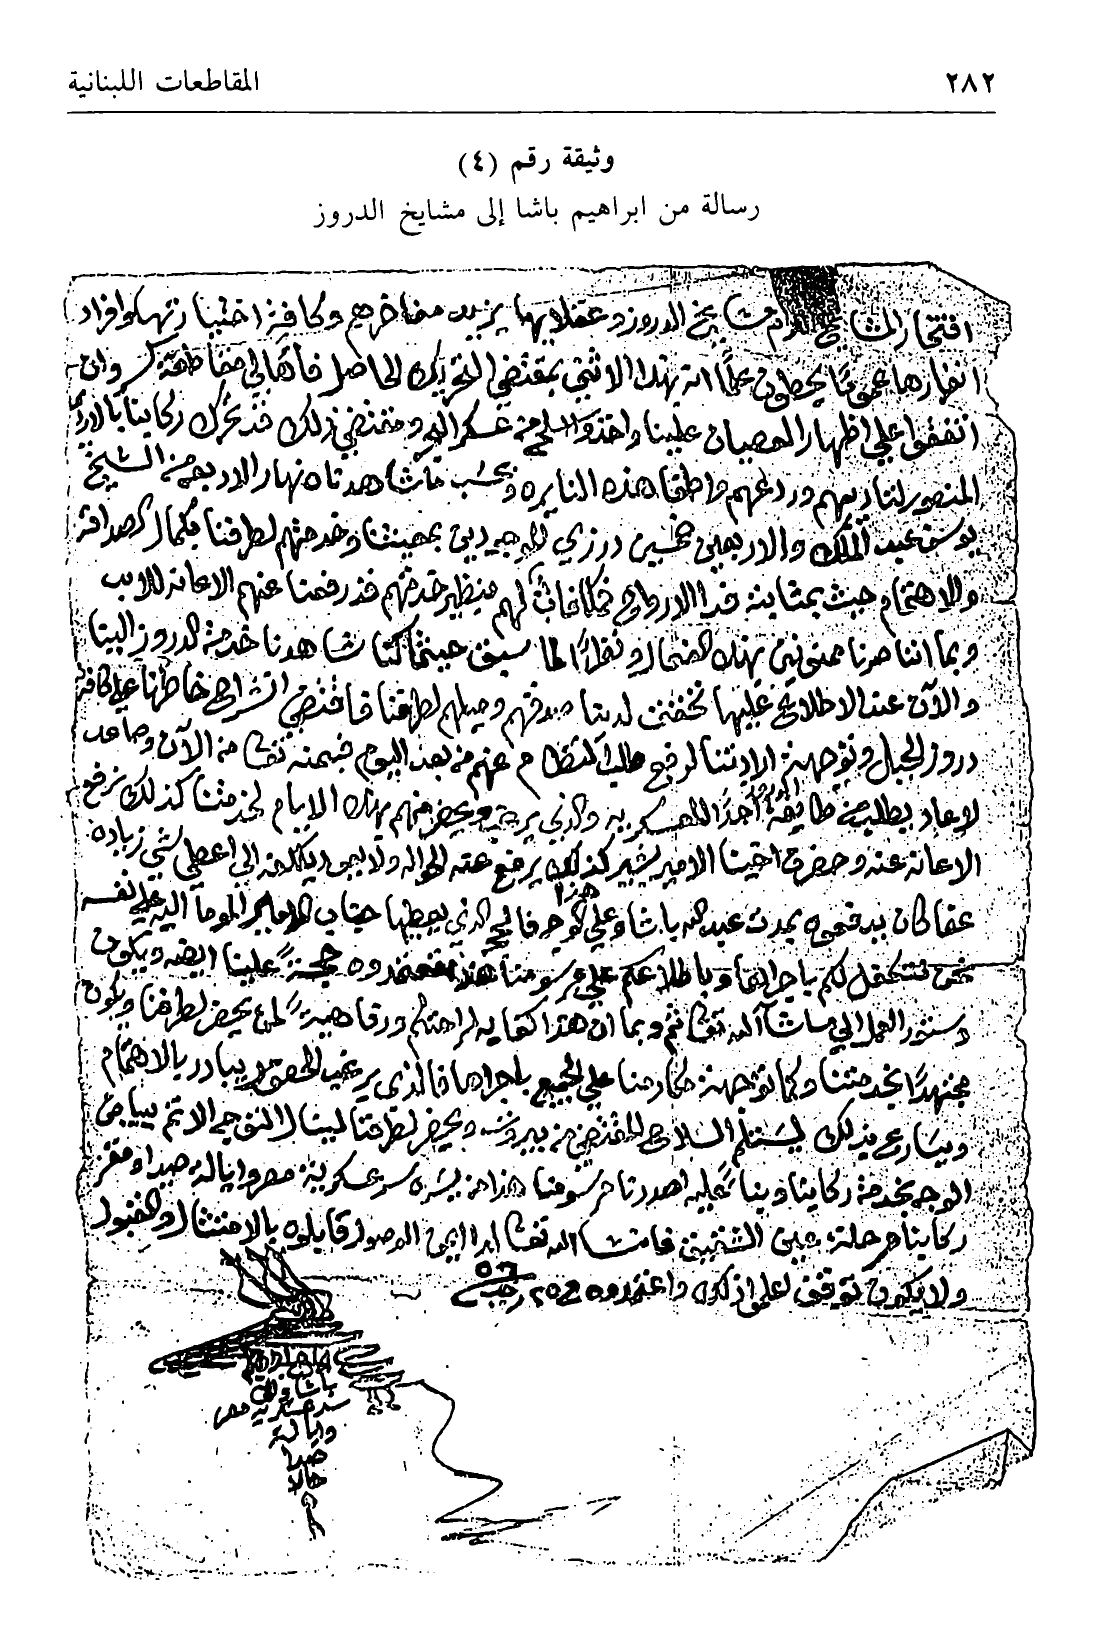 ٢٨٢
المقاطعات اللبنانية
وثيقة رقم (٤)
رسالة من ابراهيم باشا إلى مشايخ الدروز
افتخار المشايخ الكرام مشايخ الدروز وعقلايها يزيد مفاخرهم وكافة اختيارتهم وافراد
انفارها عموماً يحيطون علماً انه بهذا الاثني بمقتضي التحريك الحاصل فأهالي مقاطعة وان
اتفقوا علي اظهار العصيان علينا واخذوا السلاح من عسكر ومقتضي ذلك قد تحرك ركابنا
المنصور لتاديبهم وردعهم واطفا هذه النايره وبحسب ما شاهدناه نهار الاربعه من الشيخ
يوسف عبد الملك والاربعين خمسين درزي الموجودين بمعيتنا وخدمتهم لطرفنا بكمال الصداقة
والاهتمام حيث بمثابة فدا الارواح فمكافاتاً لهم منظير خدمتهم قد رفعنا عنهم الاعانه للابد
وبما اننا صرنا ممنونين بهذه الفعال ونظراً لما سبق حينما كنا شاهدنا خدمة الدروز الينا
والآن عند الاطلاع عليها تحققت لدينا صدقهم وميلهم لطرفنا فاقتضي انشراح خاطرنا علي كافة
دروز الجبل وتوجهة ارادتنا لرفع طلب النظام عنهم من بعد اليوم فبمنه تعا من الآن وصاعد
لا عاد يطلب من طايفة الدروز احداً للعسكريه والذي يرغب ويحضر منهم بهذه الايام لخدمتنا كذلك نرفع
الاعانه عنه وحضرة اخينا الامير بشير كذلك يرفع عنه الحواله ولا يعود يكلفه الي اعطي شي زياده
عما كان يدفعوه بمدت عبد الله باشا وعلي هذا الوجه فالحجج الذي يعطيها جناب الامير المومآ اليه علي نفسه
نحن نتكفل لكم باجرائها وباطلاعكم علي مرسومنا هذا تعتمدوه حجةً علينا ايضه ويكون
دستور العمل الي ماشآ الله تعا ثم وبما ان هذا كفايه لراحتكم ورفاهيةً يحضر لطرفنا ويكون
مجتهداً بخدمتنا وكما توجهة مكارمنا علي الجميع باجراها فالذي يرغب الحضور يبادر بالاهتمام
ويسارع بذلك ليستلم السلاح المقتضي من بيروت ويحضر لطرفنا لينال التوجه الاتم بياض
الوجه بخدمة ركابنا وبناً عليه اصدرنا مرسومنا هذا من يسره سر عسكرية مصر وايالة صيدا ومقر
ركابنا مرحلة عين فانشا الله تعا لدا الوصول قابلوه بالامتثال والقبول
ولا يكون توقف اعلموا ذلك واعتمدوه في رجب
الحاج ابراهيم
باشا والي
سر عسكرية مصر
وايالة
صيدا
حالا